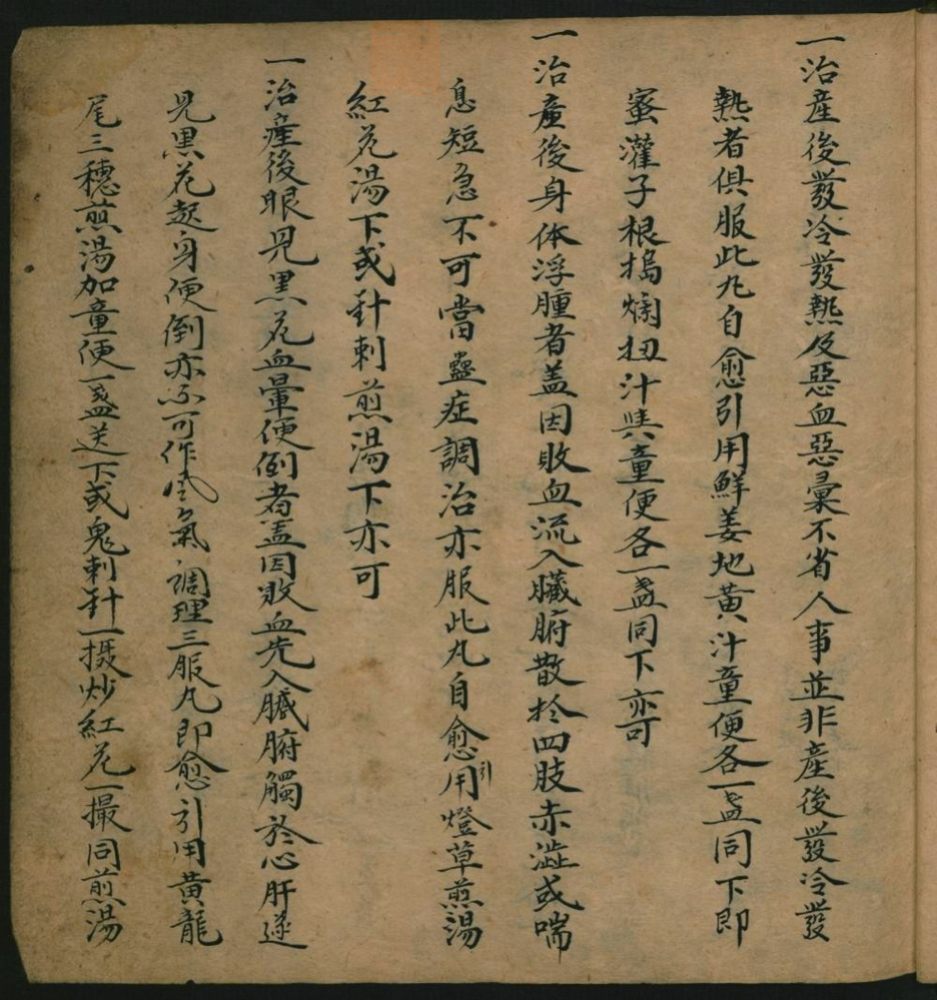 一治産後發冷發熱及惡血惡彙不省人事並非産後發冷發
熱者俱服此丸自愈引用鮮姜地黄汁童便各一盏同下即
蜜灌子根搗爛扭汁與童便各一盏同下亦可
一治産後身体浮腫者盖因敗血流入臟腑散扵四肢赤澁或喘
息短急不可當蠱症調治亦服此丸自愈用引燈草煎湯
紅花湯下或針刺煎湯下亦可
一治産後眼見黒花血暈便倒者盖因敗血先入臟腑觸於心肝遂
見黒花起身便倒亦不可作風氣調理三服丸即愈引用黄龍
尾三穗煎湯加童便一盏送下或鬼刺針一撮炒紅花一撮同煎湯